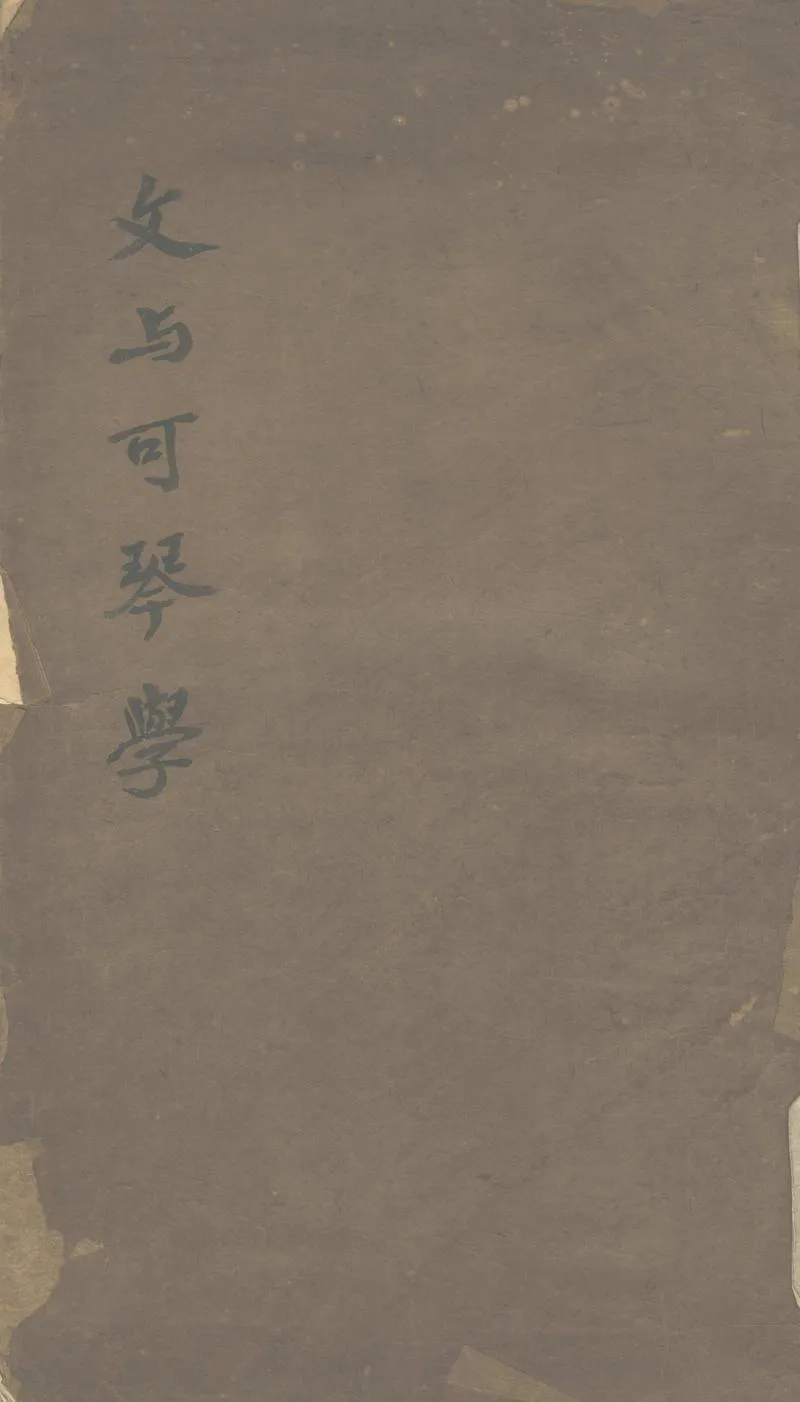 文与可琴學